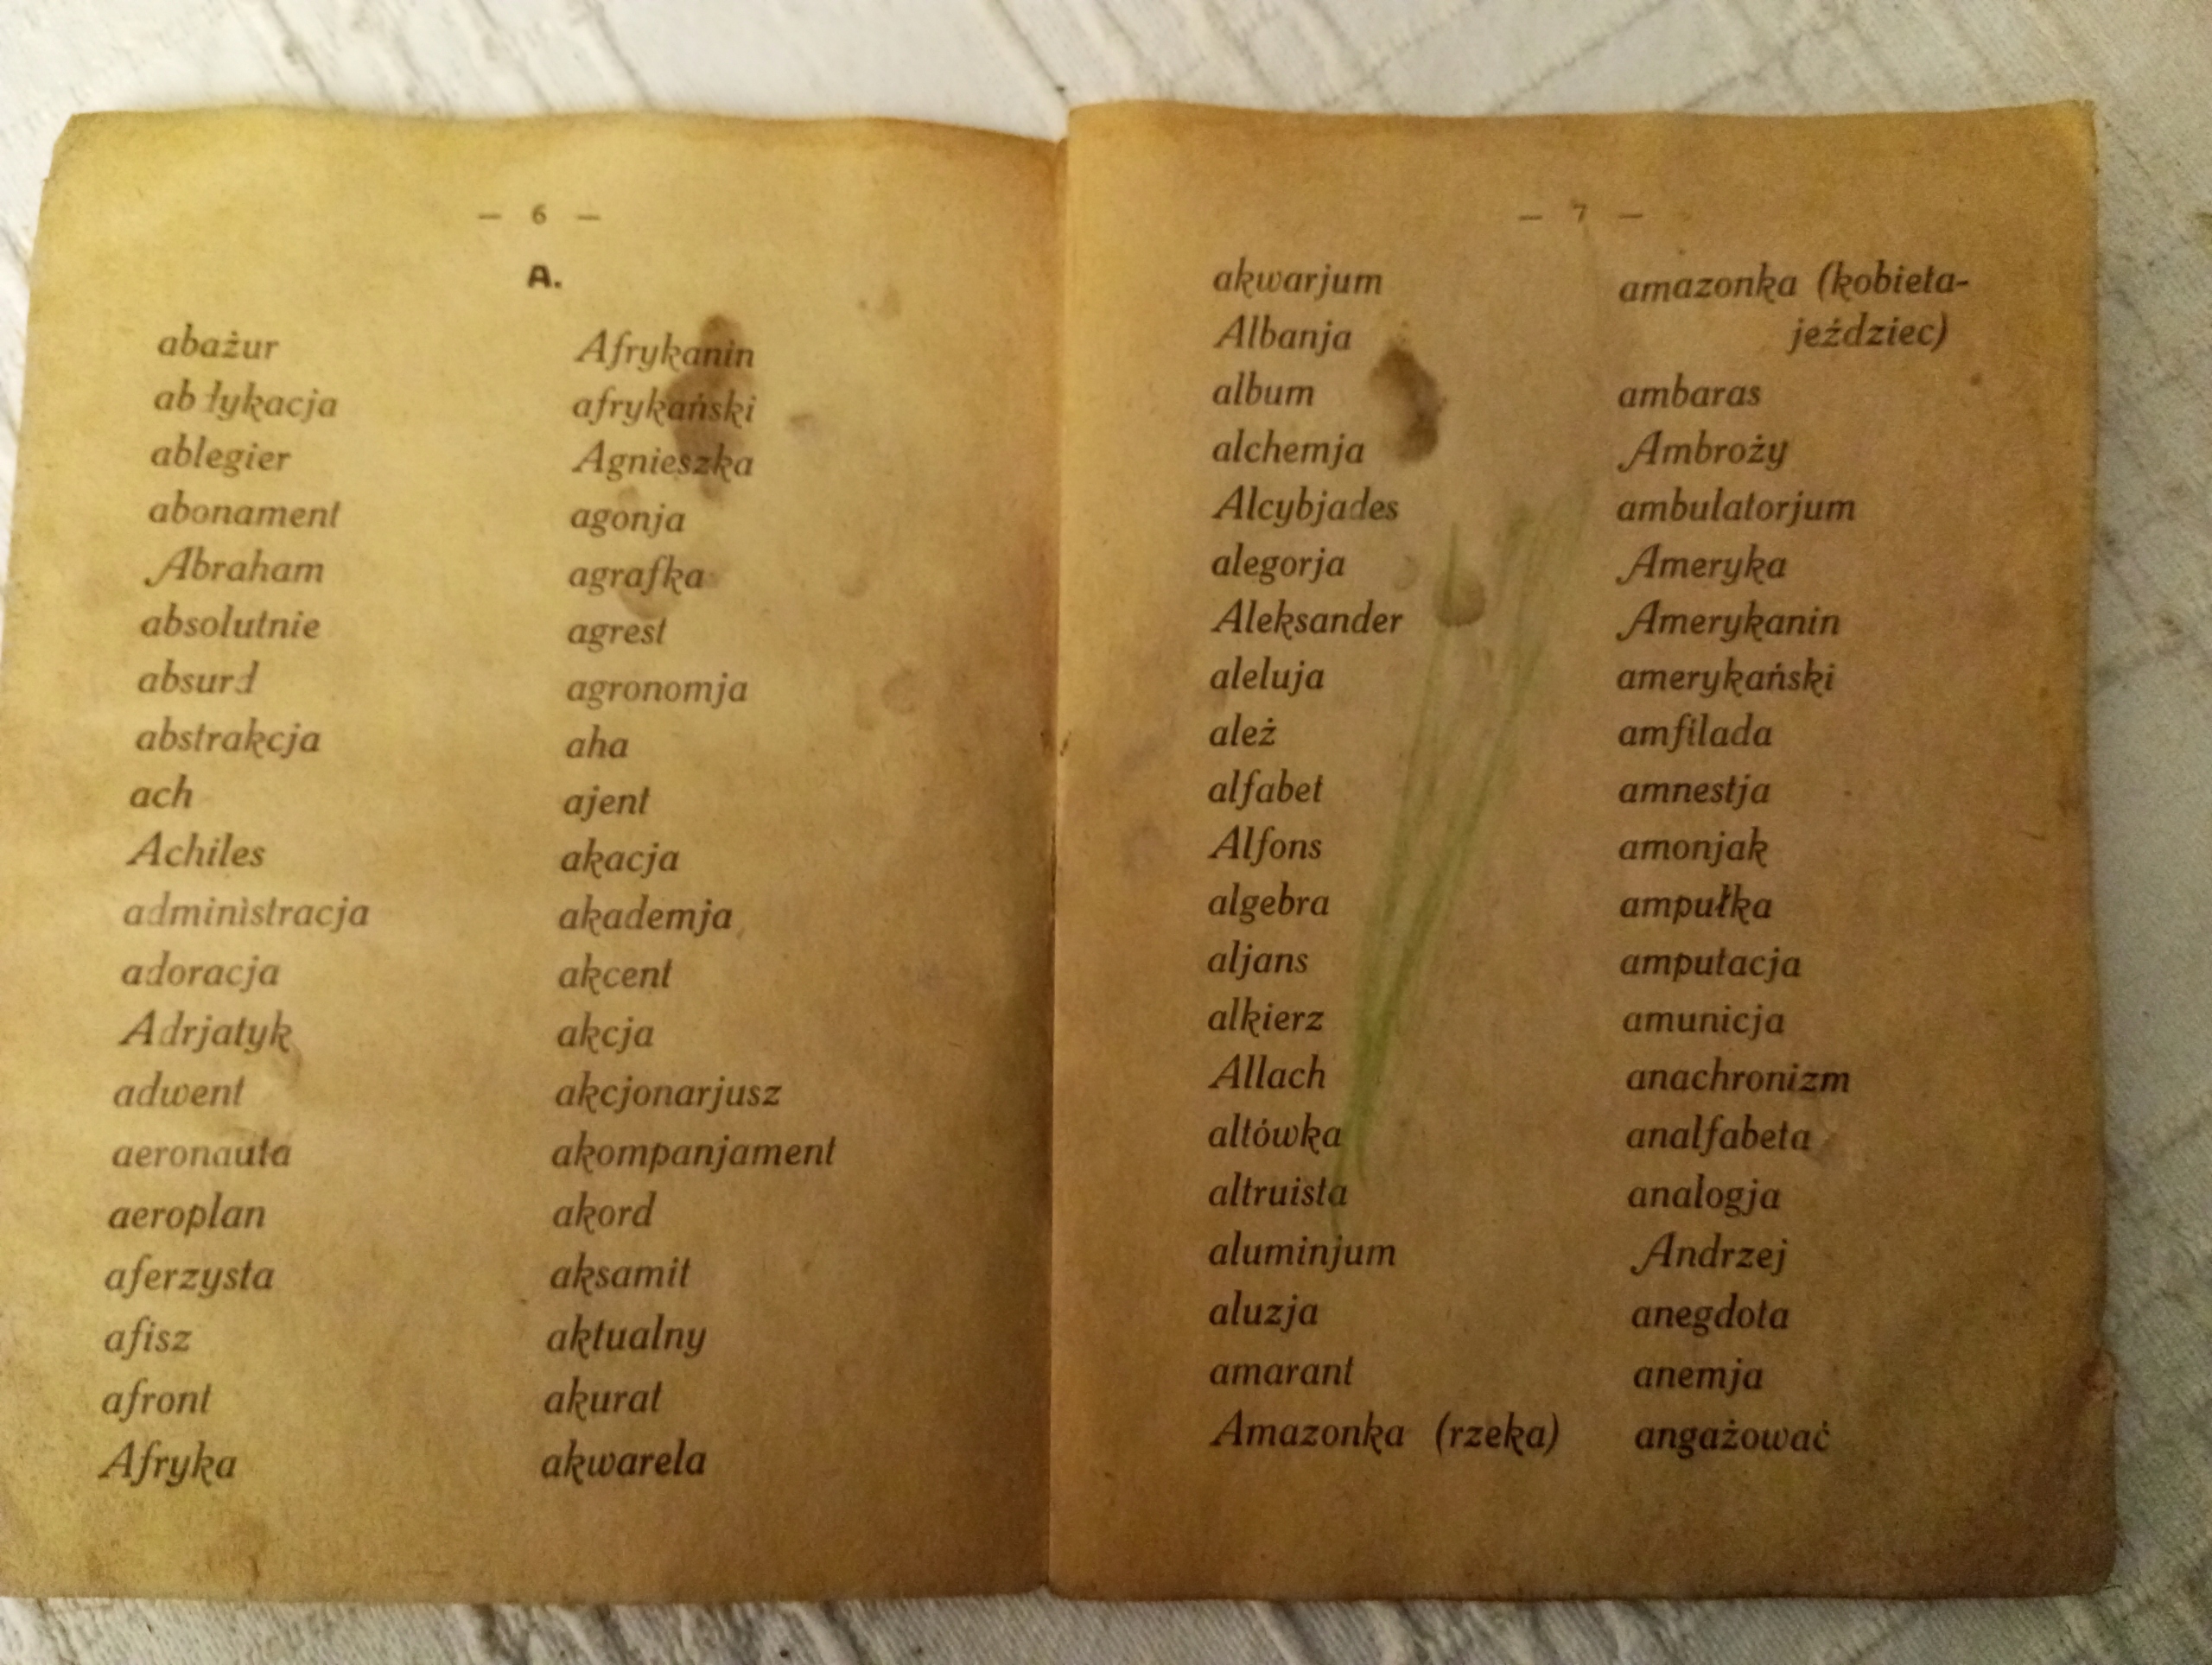 — 6 —
A.
abażur
ab łykacja
ablegier
abonament
Abraham
absolutnie
absurd
abstrakcja
ach
Achiles
administracja
adoracja
Adrjatyk
adwent
aeronauta
aeroplan
aferzysta
afisz
afront
Afryka
Afrykanin
afrykański
Agnieszka
agonja
agrafka
agrest
agronomja
aha
ajent
akacja
akademja
akcent
akcja
akcjonarjusz
akompanjament
akord
aksamit
aktualny
akurat
akwarela
— 7 —
akwarjum
Albanja
album
alchemja
Alcybjades
alegorja
Aleksander
aleluja
ależ
alfabet
Alfons
algebra
aljans
alkierz
Allach
altówka
altruista
aluminjum
aluzja
amarant
Amazonka (rzeka)
amazonka (kobieta-
jeździec)
ambaras
Ambroży
ambulatorjum
Ameryka
Amerykanin
amerykański
amfilada
amnestja
amonjak
ampułka
amputacja
amunicja
anachronizm
analfabeta
analogja
Andrzej
anegdota
anemja
angażować